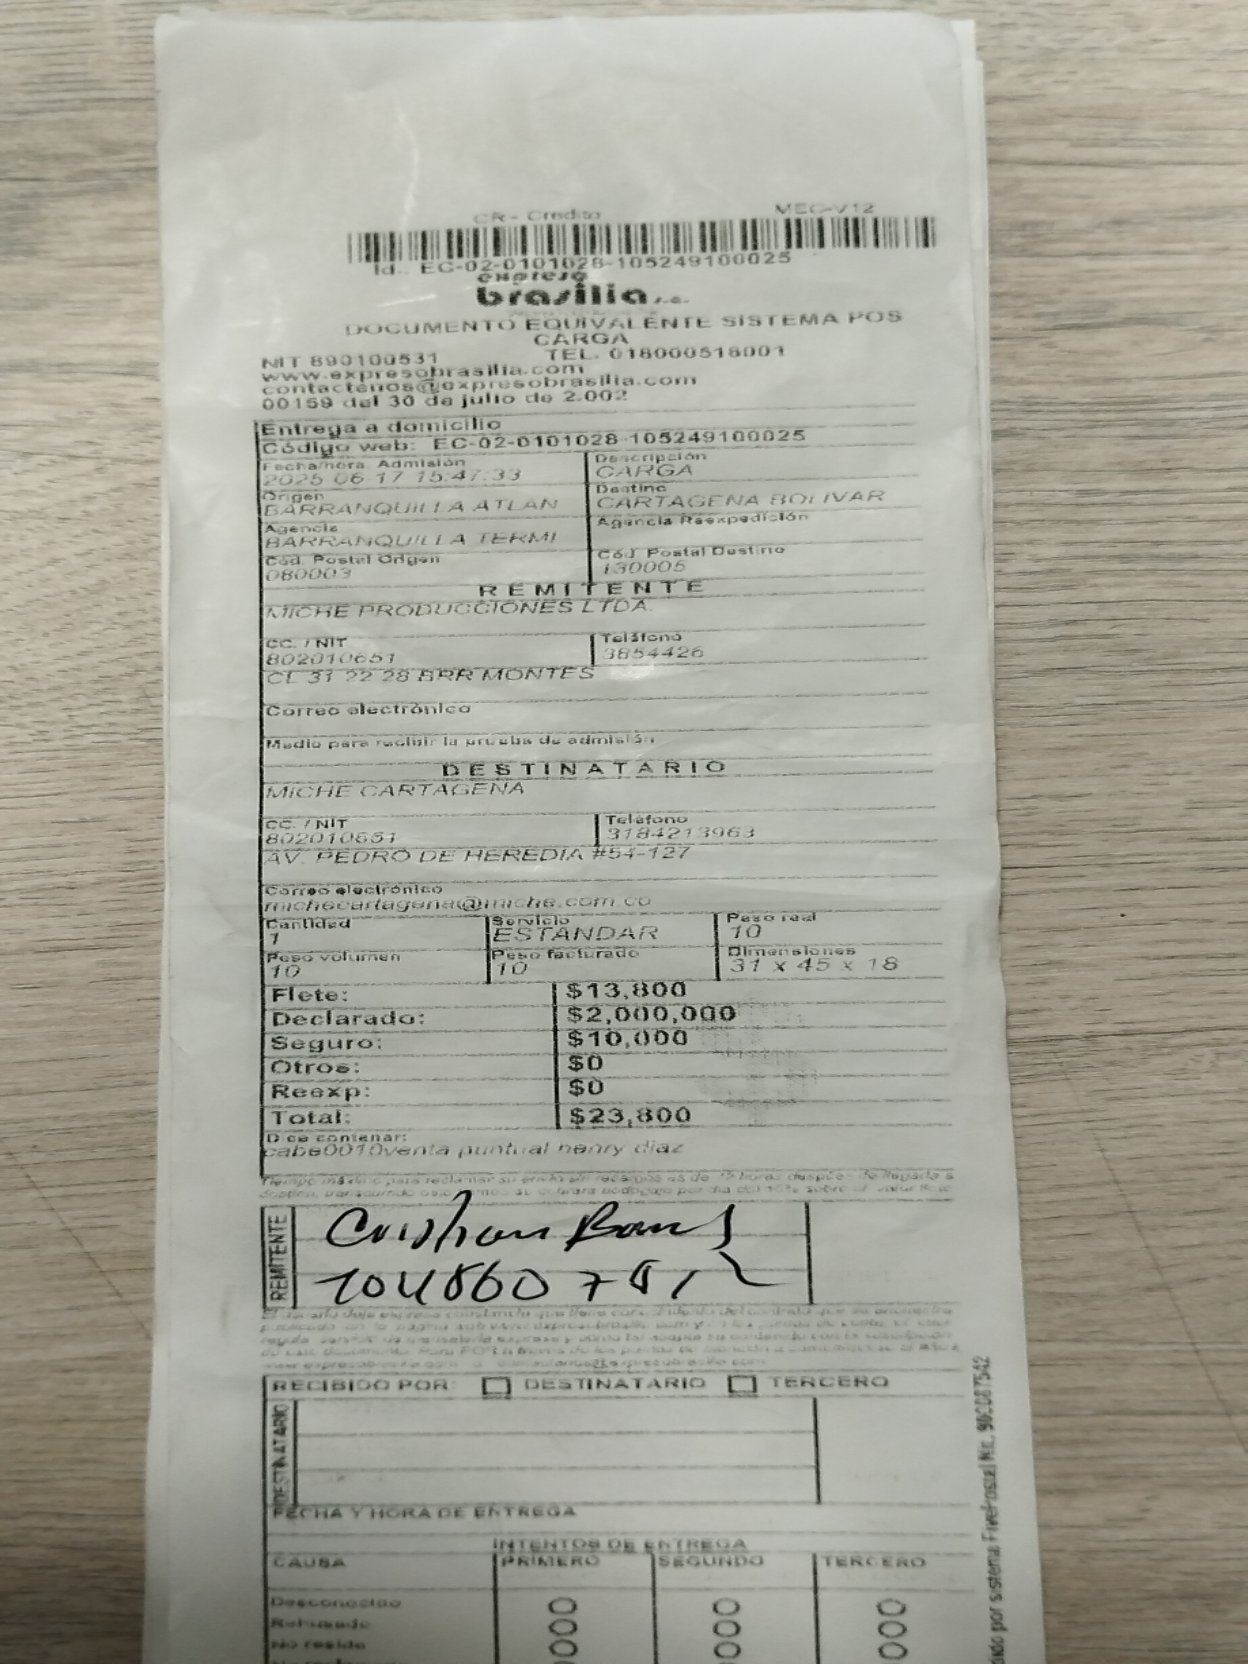 CR - Credito MEC-V12
Id.: EC-02-0101028-105249100025
expreso
brasilia s.a.
DOCUMENTO EQUIVALENTE SISTEMA POS
CARGA
NIT 890100531 TEL. 018000518001
www.expresobrasilia.com
contactenos@expresobrasilia.com
00159 del 30 de julio de 2.002
Entrega a domicilio
Código web: EC-02-0101028-105249100025
Fecha/hora Admisión Descripción
2025 06 17 15:47:33 CARGA
Origen Destino
BARRANQUILLA ATLAN CARTAGENA BOLIVAR
Agencia Agencia Reexpedición
BARRANQUILLA TERMI
Cód. Postal Origen Cód Postal Destino
080003 130005
REMITENTE
MICHE PRODUCCIONES LTDA.
CC. / NIT Teléfono
802010651 3854426
CL 31 22 28 BRR MONTES
Correo electrónico
Medio para recibir la prueba de admisión
DESTINATARIO
MICHE CARTAGENA
CC. / NIT Teléfono
802010651 3184213963
AV. PEDRO DE HEREDIA #54-127
Correo electrónico
michecartagena@miche.com.co
Cantidad Servicio Peso real
1 ESTANDAR 10
Peso volumen Peso facturado Dimensiones
10 10 31 x 45 x 18
Flete: $13,800
Declarado: $2,000,000
Seguro: $10,000
Otros: $0
Reexp: $0
Total: $23,800
Dice contener:
cabe0010venta puntual henry diaz
Tiempo máximo para reclamar su envío sin recargos es de 72 horas después de llegada a
REMITENTE
Cristian
RECIBIDO POR: DESTINATARIO TERCERO
DESTINATARIO
FECHA Y HORA DE ENTREGA
INTENTOS DE ENTREGA
CAUSA PRIMERO SEGUNDO TERCERO
Desconocido
Rehusado
No reside